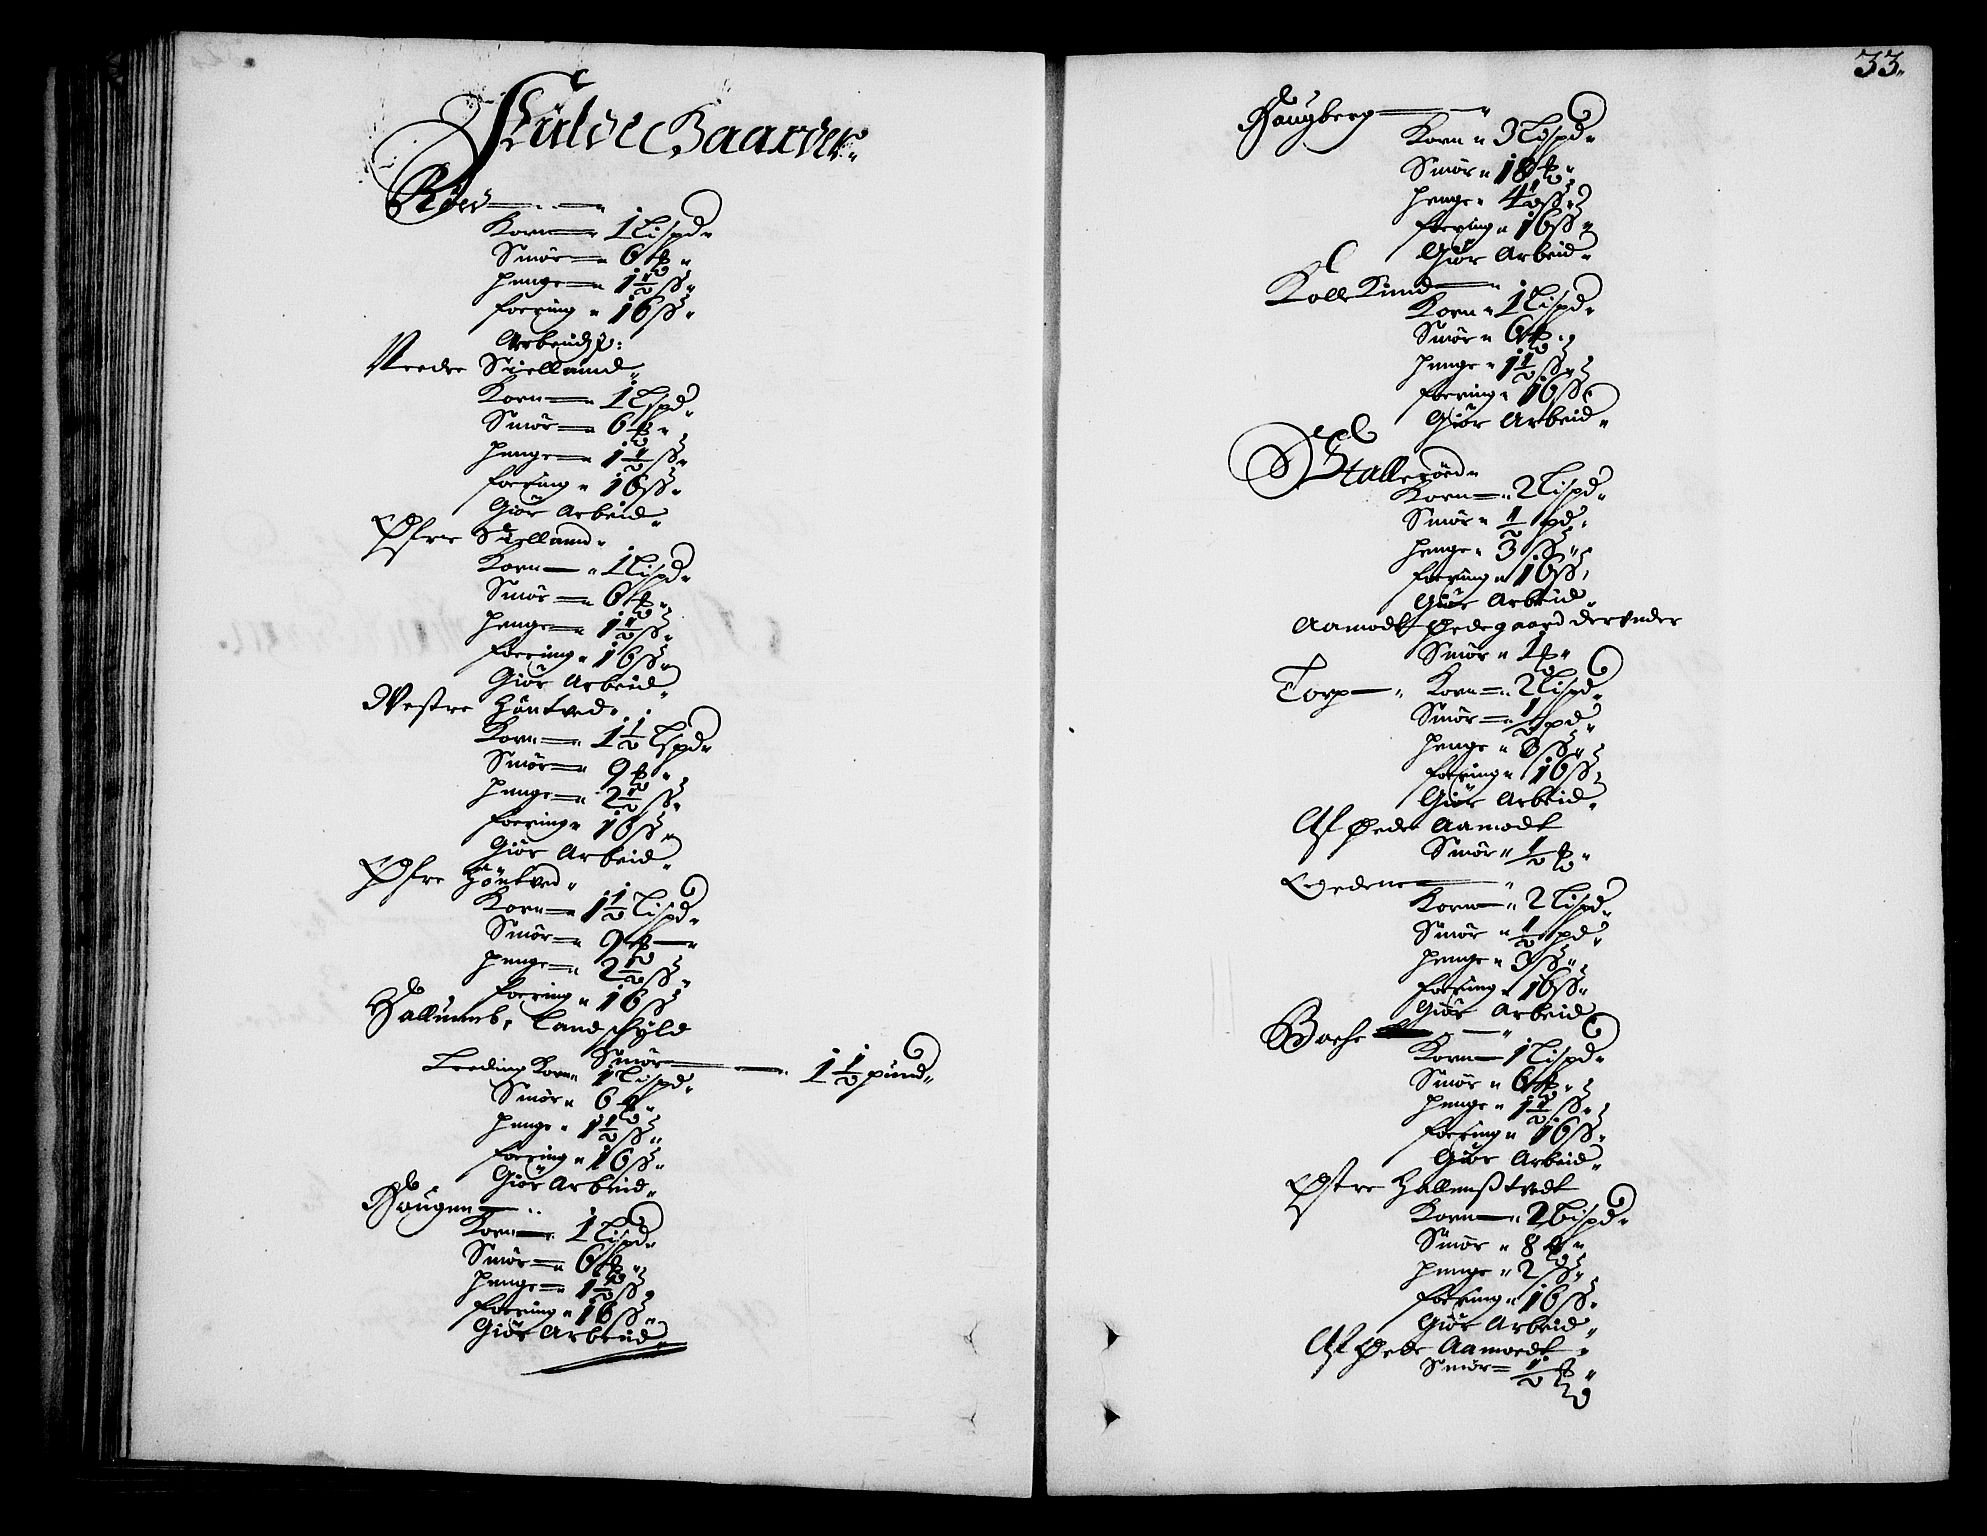 Fulde Gaarder
Röer
Korn 1 Lispd
Smör 6 ℔
Penge 1 1/2 ß
foering 16 ß
Arbeid
Nedre Sielland
Korn 1 Lspd
Smör 6 ℔
Penge 1 1/2 ß
foering 16 ß
Giör Arbeid
Øfre Sielland
Korn 1 Lispd
Smör 6 ℔
Penge 1 1/2 ß
foering 16 ß
Giör Arbeid
Westre Höntved
Korn 1 1/2 Lspd
Smör 9 ℔
Penge 2 1/2 ß
foering 16 ß
Giör Arbeid
Øfre Höntved
Korn 1 1/2 Lispd
Smör 9 ℔
Penge 2 1/2 ß
foering 16 ß
Hallumb, Landschyld
Smör 1 1/2 pund
Leeding Korn 1 Lispd
Smör 6 ℔
Penge 1 1/2 ß
foering 16 ß
Giör Arbeid
Hougen
Korn 1 Lispd
Smör 6 ℔
Penge 1 1/2 ß
foering 16 ß
Giör Arbeid
33
Hougberg
Korn 3 Lispd
Smör 18 ℔
Penge 4 1/2 ß
foering 16 ß
Giör Arbeid
Kolle Kind
Korn 1 Lispd
Smör 6 ℔
Penge 1 1/2 ß
foering 16 ß
Giör Arbeid
Stalleröed
Korn 2 Lispd
Smör 1/2 pd
Penge 3 ß
foering 16 ß
Giör Arbeid
Aamodt Ødegaard derunder
Smör 1 ℔
Torp Korn 2 Lispd
Smör 1/2 pd
Penge 3 ß
foering 16 ß
Giör Arbeid
Af Øede Aamodt
Smör 1/2 ℔
Egedene
Korn 2 Lispd
Smör 1/2 pd
Penge 3 ß
foering 16 ß
Giör Arbeid
Bache
Korn 1 Lispd
Smör 6 ℔
Penge 1 1/2 ß
foering 16 ß
Giör Arbeid
Østre Hallenßtvedt
Korn 2 Lispd
Smör 8 ℔
Penge 2 ß
foering 16 ß
Giör Arbeid
Af Øede Aamoedt
Smör 1/2 ℔